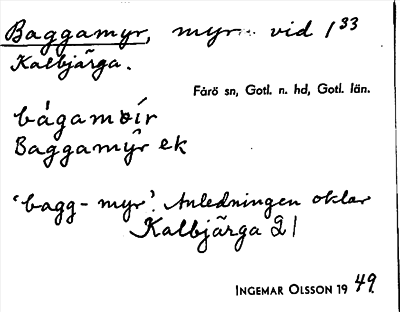 Baggamyr, myr vid 133
Kalbjärga.
Fårö sn, Gotl. n. hd, Gotl. län.
bágamoír
Baggamyr ek
'bagg-myr'. Anledningen oklar
Kalbjärga 21
INGEMAR OLSSON 1949